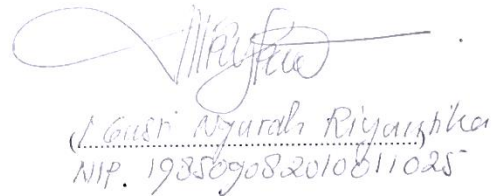 (I Gusti Ngurah Riyantika)
NIP. 198509082010011025